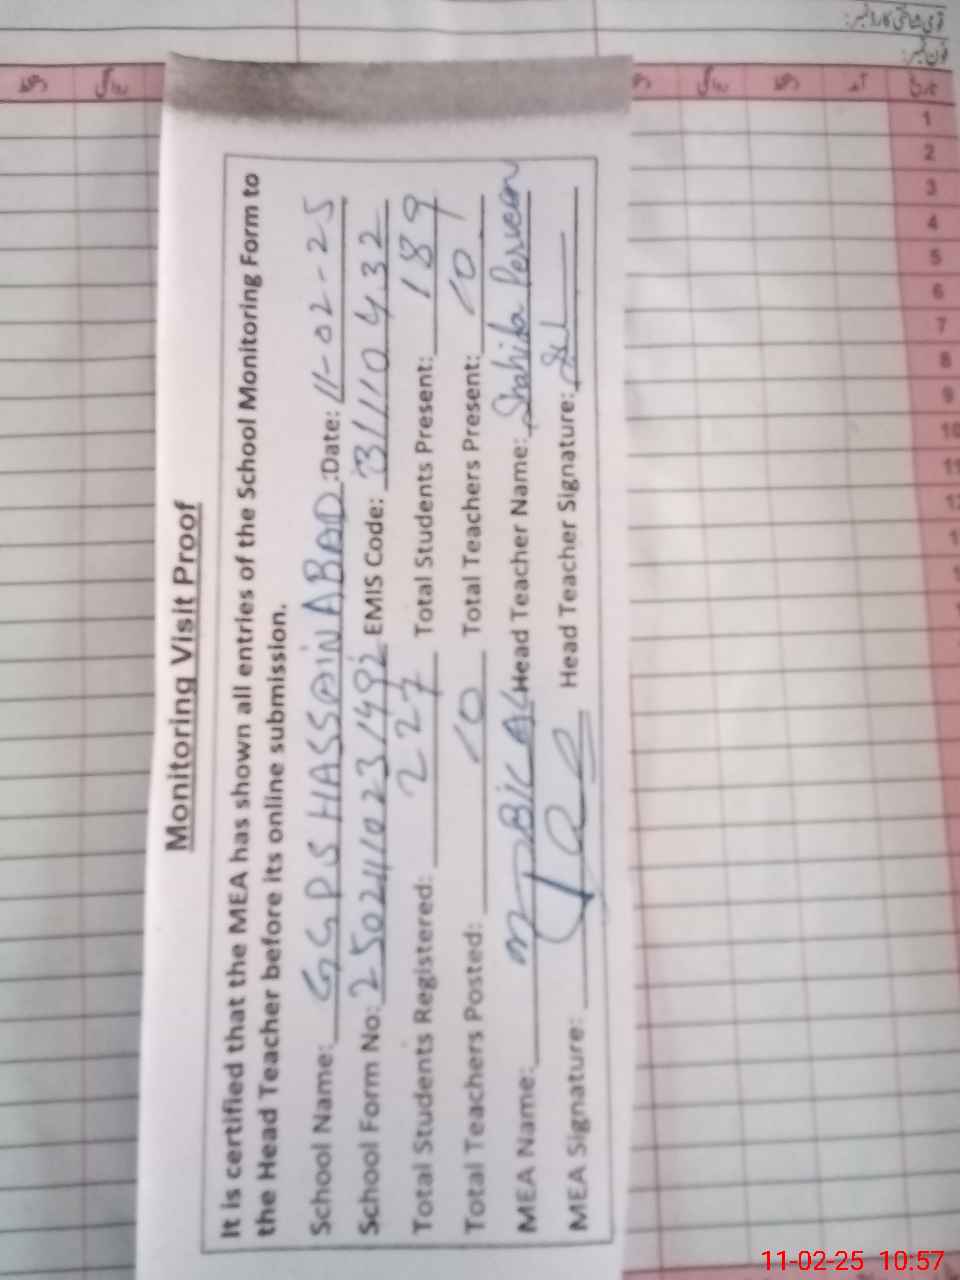 قومی شناختی کارڈ نمبر:
فون نمبر:
تاریخ آمد دستخط روانگی
روانگی
1
2
3
4
5
6
7
8
9
10
11
12
Monitoring Visit Proof
It is certified that the MEA has shown all entries of the School Monitoring Form to
the Head Teacher before its online submission.
School Name: GGPS HASSAIN ABAD :Date: 11-02-25
School Form No: EMIS Code: 31110432
Total Students Registered: 227 Total Students Present: 189
Total Teachers Posted: 10 Total Teachers Present: 10
MEA Name: Head Teacher Name: Shahida Perveen
MEA Signature: Head Teacher Signature:
11-02-25 10:57